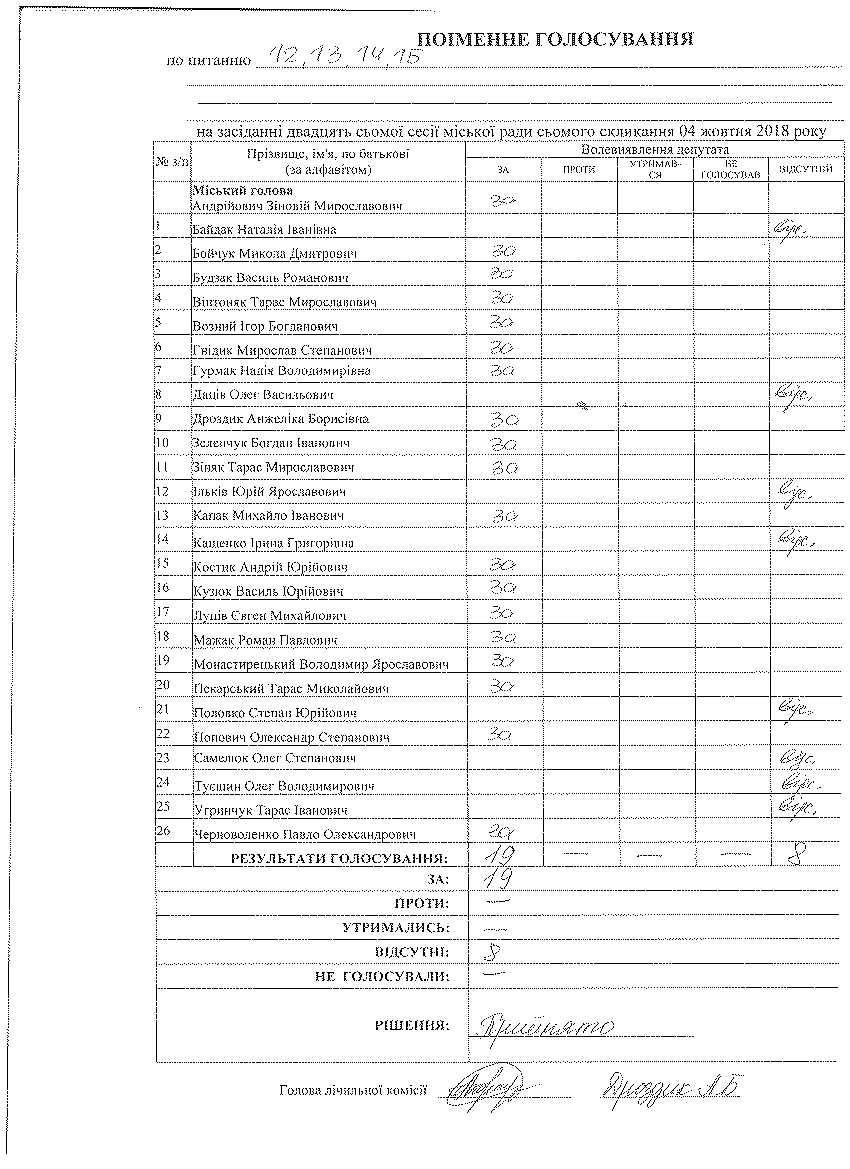 ПОІМЕННЕ ГОЛОСУВАННЯ
по питанню 12, 13, 14, 15
на засіданні двадцять сьомої сесії міської ради сьомого скликання 04 жовтня 2018 року
№ з/п Прізвище, ім'я, по батькові (за алфавітом) Волевиявлення депутата
ЗА ПРОТИ УТРИМАВ-СЯ НЕ ГОЛОСУВАВ ВІДСУТНІЙ
Міський голова
Андрійович Зіновій Мирославович за
1 Байдак Наталія Іванівна відс.
2 Бойчук Микола Дмитрович за
3 Будзак Василь Романович за
4 Вінтоняк Тарас Мирославович за
5 Возний Ігор Богданович за
6 Гвідик Мирослав Степанович за
7 Гурмак Надія Володимирівна за
8 Даців Олег Васильович відс.
9 Дроздик Анжеліка Борисівна за
10 Зеленчук Богдан Іванович за
11 Зіняк Тарас Мирославович за
12 Ільків Юрій Ярославович відс.
13 Капак Михайло Іванович за
14 Кащенко Ірина Григорівна відс.
15 Костик Андрій Юрійович за
16 Кузюк Василь Юрійович за
17 Луців Євген Михайлович за
18 Мажак Роман Павлович за
19 Монастирецький Володимир Ярославович за
20 Пекарський Тарас Миколайович за
21 Половко Степан Юрійович відс.
22 Попович Олександр Степанович за
23 Самелюк Олег Степанович відс.
24 Туєшин Олег Володимирович відс.
25 Угринчук Тарас Іванович відс.
26 Черноволенко Павло Олександрович за
РЕЗУЛЬТАТИ ГОЛОСУВАННЯ: 19 — — — 8
ЗА: 19
ПРОТИ: —
УТРИМАЛИСЬ: —
ВІДСУТНІ: 8
НЕ ГОЛОСУВАЛИ: —
РІШЕННЯ: Прийнято
Голова лічильної комісії Дроздик А.Б